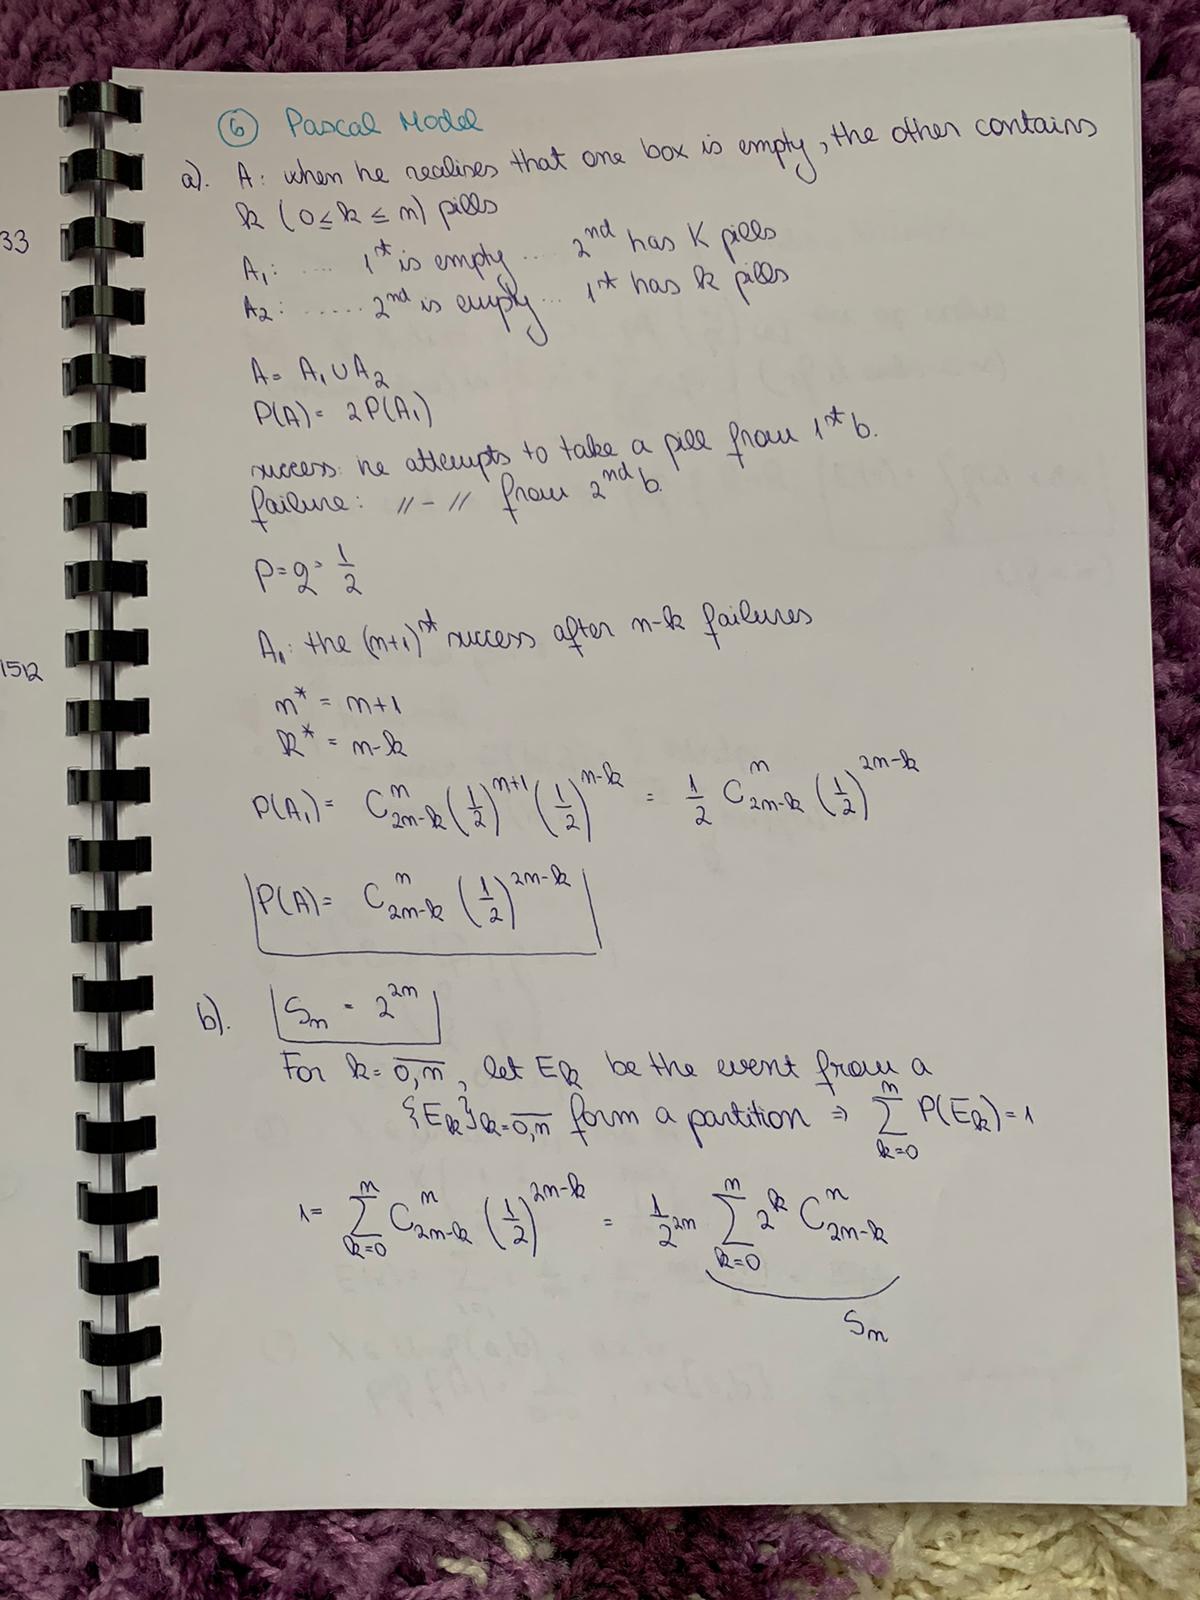 33
1512
⑥ Pascal Model
a). A: when he realises that one box is empty, the other contains
k (0 ≤ k ≤ n) pills
A₁: .... 1st is empty .... 2nd has K pills
A₂: ..... 2nd is empty ... 1st has k pills
A = A₁ ∪ A₂
P(A) = 2P(A₁)
success: he attempts to take a pill from 1st b.
failure: // – // from 2nd b.
p = q = 1/2
A₁: the (n+1)st success after n-k failures
n* = n+1
k* = n-k
P(A₁) = C_{2n-k}^{n} (1/2)^{n+1} (1/2)^{n-k} = 1/2 C_{2n-k}^{n} (1/2)^{2n-k}
P(A) = C_{2n-k}^{n} (1/2)^{2n-k}
b). Sₙ = 2^{2n}
For k = \overline{0,n}, let Ek be the event from a
{Ek}_{k=\overline{0,n}} form a partition ⇒ ∑_{k=0}^{n} P(Ek) = 1
1 = ∑_{k=0}^{n} C_{2n-k}^{n} (1/2)^{2n-k} = 1/2^{2n} ∑_{k=0}^{n} 2^k C_{2n-k}^{n}
Sₙ